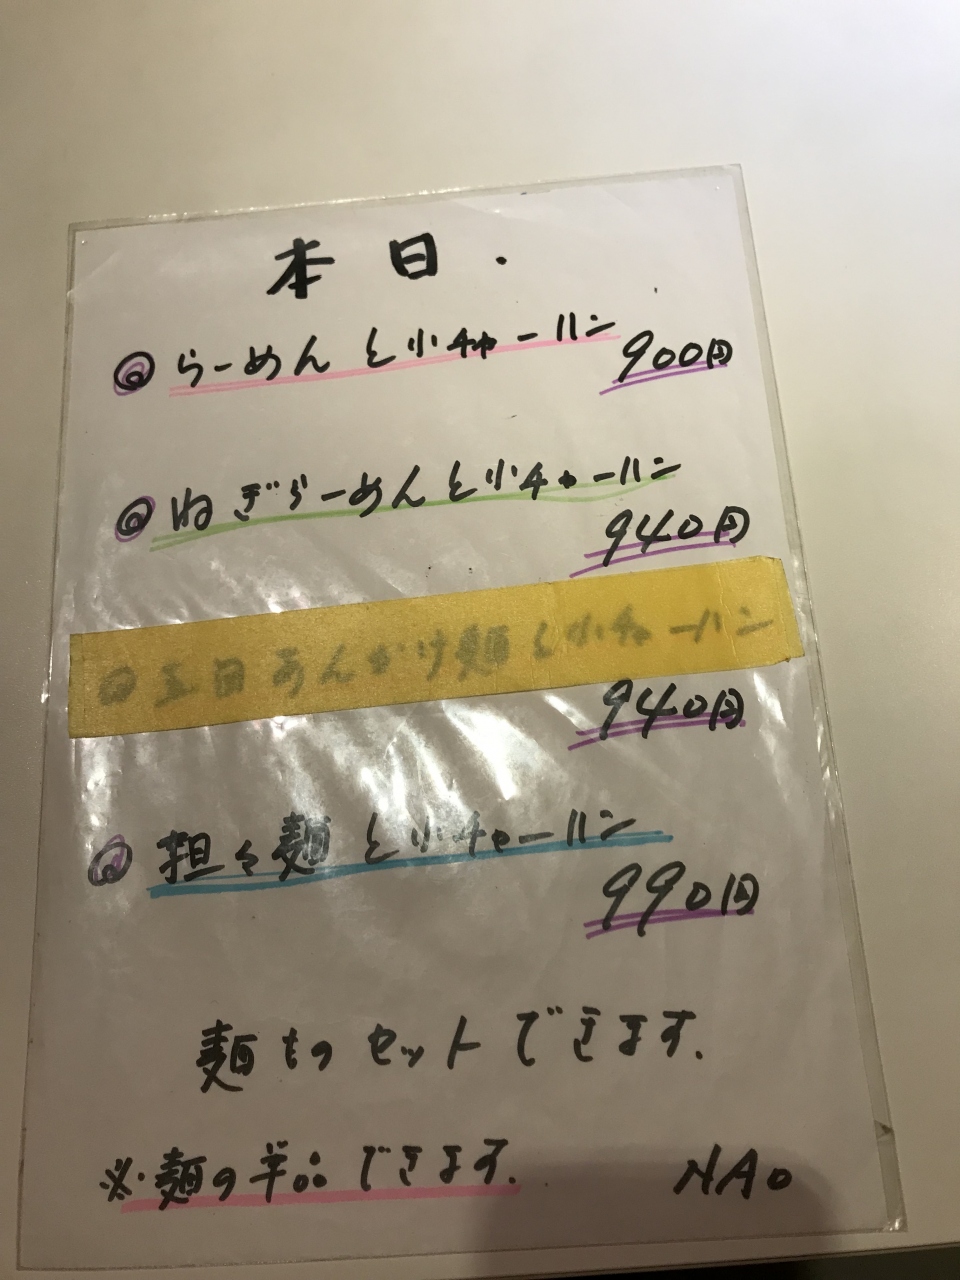 本日.
◎らーめんと小チャーハン
900円
◎ねぎらーめんと小チャーハン
940円
◎五目あんかけ麺と小チャーハン
940円
◎担々麺と小チャーハン
990円
麺ものセットできます.
※.麺の半品できます.
NAO